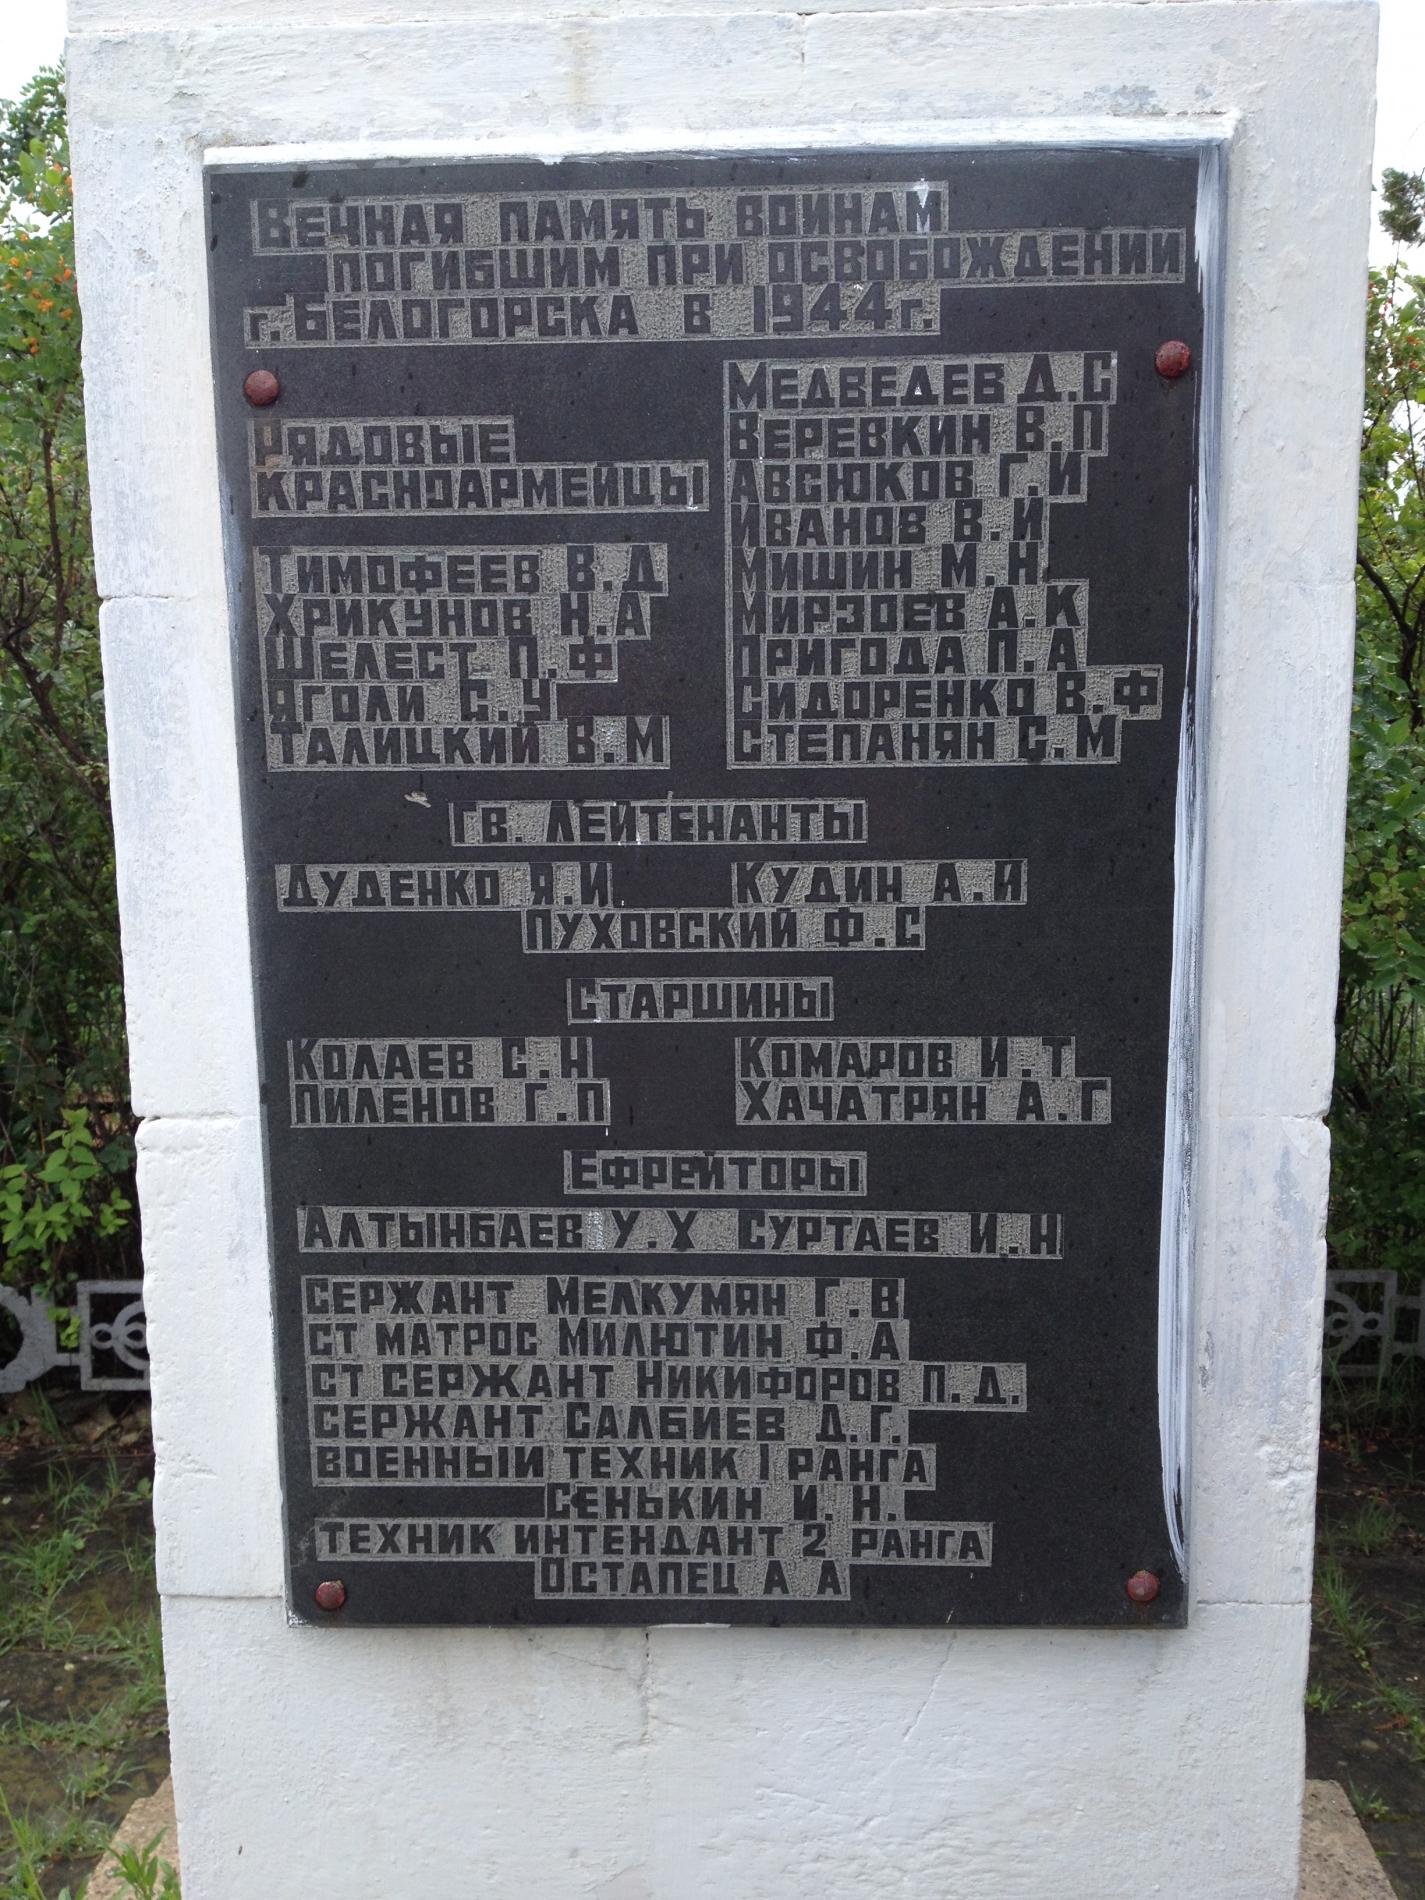 Вечная память воинам
погибшим при освобождении
г. Белогорска в 1944 г.
Рядовые
красноармейцы
Тимофеев В.Д
Хрикунов Н.А
Шелест П.Ф
Яголи С.У
Талицкий В.М
Медведев Д.С
Веревкин В.П
Авсюков Г.И
Иванов В.И
Мишин М.Н
Мирзоев А.К
Пригода П.А
Сидоренко В.Ф
Степанян С.М
Гв. лейтенанты
Дуденко Я.И Кудин А.И
Пуховский Ф.С
Старшины
Колаев С.Н Комаров И.Т
Пиленов Г.П Хачатрян А.Г
Ефрейторы
Алтынбаев У.Х Суртаев И.Н
сержант Мелкумян Г.В
ст матрос Милютин Ф.А
ст сержант Никифоров П.Д.
сержант Салбиев Д.Г.
военный техник I ранга
Сенькин И.Н.
техник интендант 2 ранга
Остапец А А